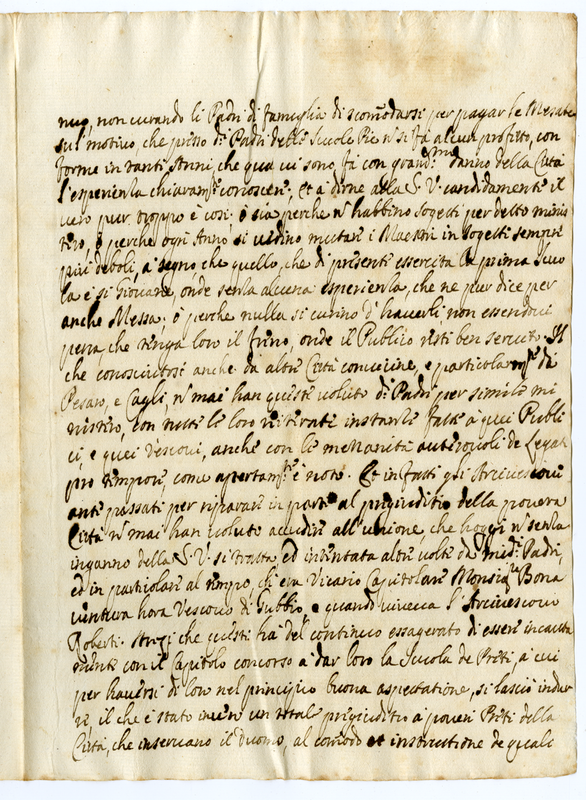 nuo, non curando li Padri di famiglia di scomodarsi per pagar le Mesate
sul motivo, che presso d.i Padri delle Scuole Pie n si fà alcun profitto, con
forme in tanti Anni, che qua vi sono, fà con grand.mo danno della Città
l'esperienza chiaram.te conoscere; Et a dirne alla S. V. candidamente il
vero pur troppo è così; ò sia perche n habbino sogetti per detto minis
tero, ò perche ogni Anno si vedino mutare i Maestri in sogetti sempre
più deboli, a segno che quello, che di presente essercita la prima Scuo
la è sì Giovane, onde senza alcuna esperienza, che ne pur dice per
anche Messa; ò perche nulla si curino d' haverli, non essendovi
persa che tenga loro il freno, onde il Publico resti ben servito. Il
che conosciutosi anche da altre Città convicine, e particolarm.te di
Pesaro, e Cagli, n mai han queste voluto d.i Padri per simile mi
nistero, con tutte le loro reiterate instanze fatte à quei Publi
ci, e quei Vescovi, anche con le mezzanità autorevoli de Legati
pro tempore, come apertam.te è noto. Et in fatti gli Arcivescovi
ante passati per riparare in parte al pregiuditio della povera
Città n mai han voluto accudire all' unione, che hoggi n senza
inganno della S. V. si tratta ed intentata altre volte da med.i Padri,
ed in particolare al tempo, ch'era Vicario Capitolare Monsig.r Bona
ventura hora Vescovo di Gubbio, e quando viveva l'Arcivescovo
Roberti. Anzi che questi hà del continuo essagerato di essere incauta
mente con il Capitolo concorso a dar loro la Scuola de Preti, a cui
per haversi di loro nel principio buona aspettatione, si lasciò indur
re il che è stato in vero un total pregiuditio a poveri Preti della
Città, che inservano il Duomo, al comodo et instruttione de quali